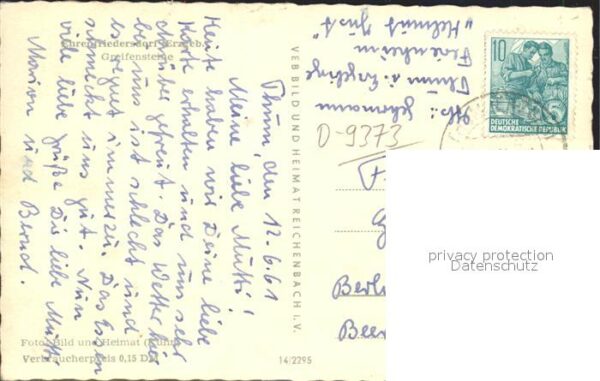 Ehrenfriedersdorf (Erzgeb.)
Greifensteine
Thum, den 12.6.61
Meine liebe Mutti!
Heute haben wir Deine liebe
Karte erhalten und uns sehr
darüber gefreut. Das Wetter hier
bei uns ist schlecht und
es regnet immerzu. Das Essen
schmeckt uns gut. Nun
viele liebe Grüße Dir liebe Mutti
Marion und Bernd.
Foto: Bild und Heimat (Kühn)
Verbraucherpreis 0,15 DM
14/2295
VEB BILD UND HEIMAT REICHENBACH I. V.
Abs.: Gehrmann
Thum i. Erzgebirge
Ferienheim
"Helmut Just"
D-9373
10
5
DEUTSCHE
DEMOKRATISCHE REPUBLIK
Berl
privacy protection
Datenschutz